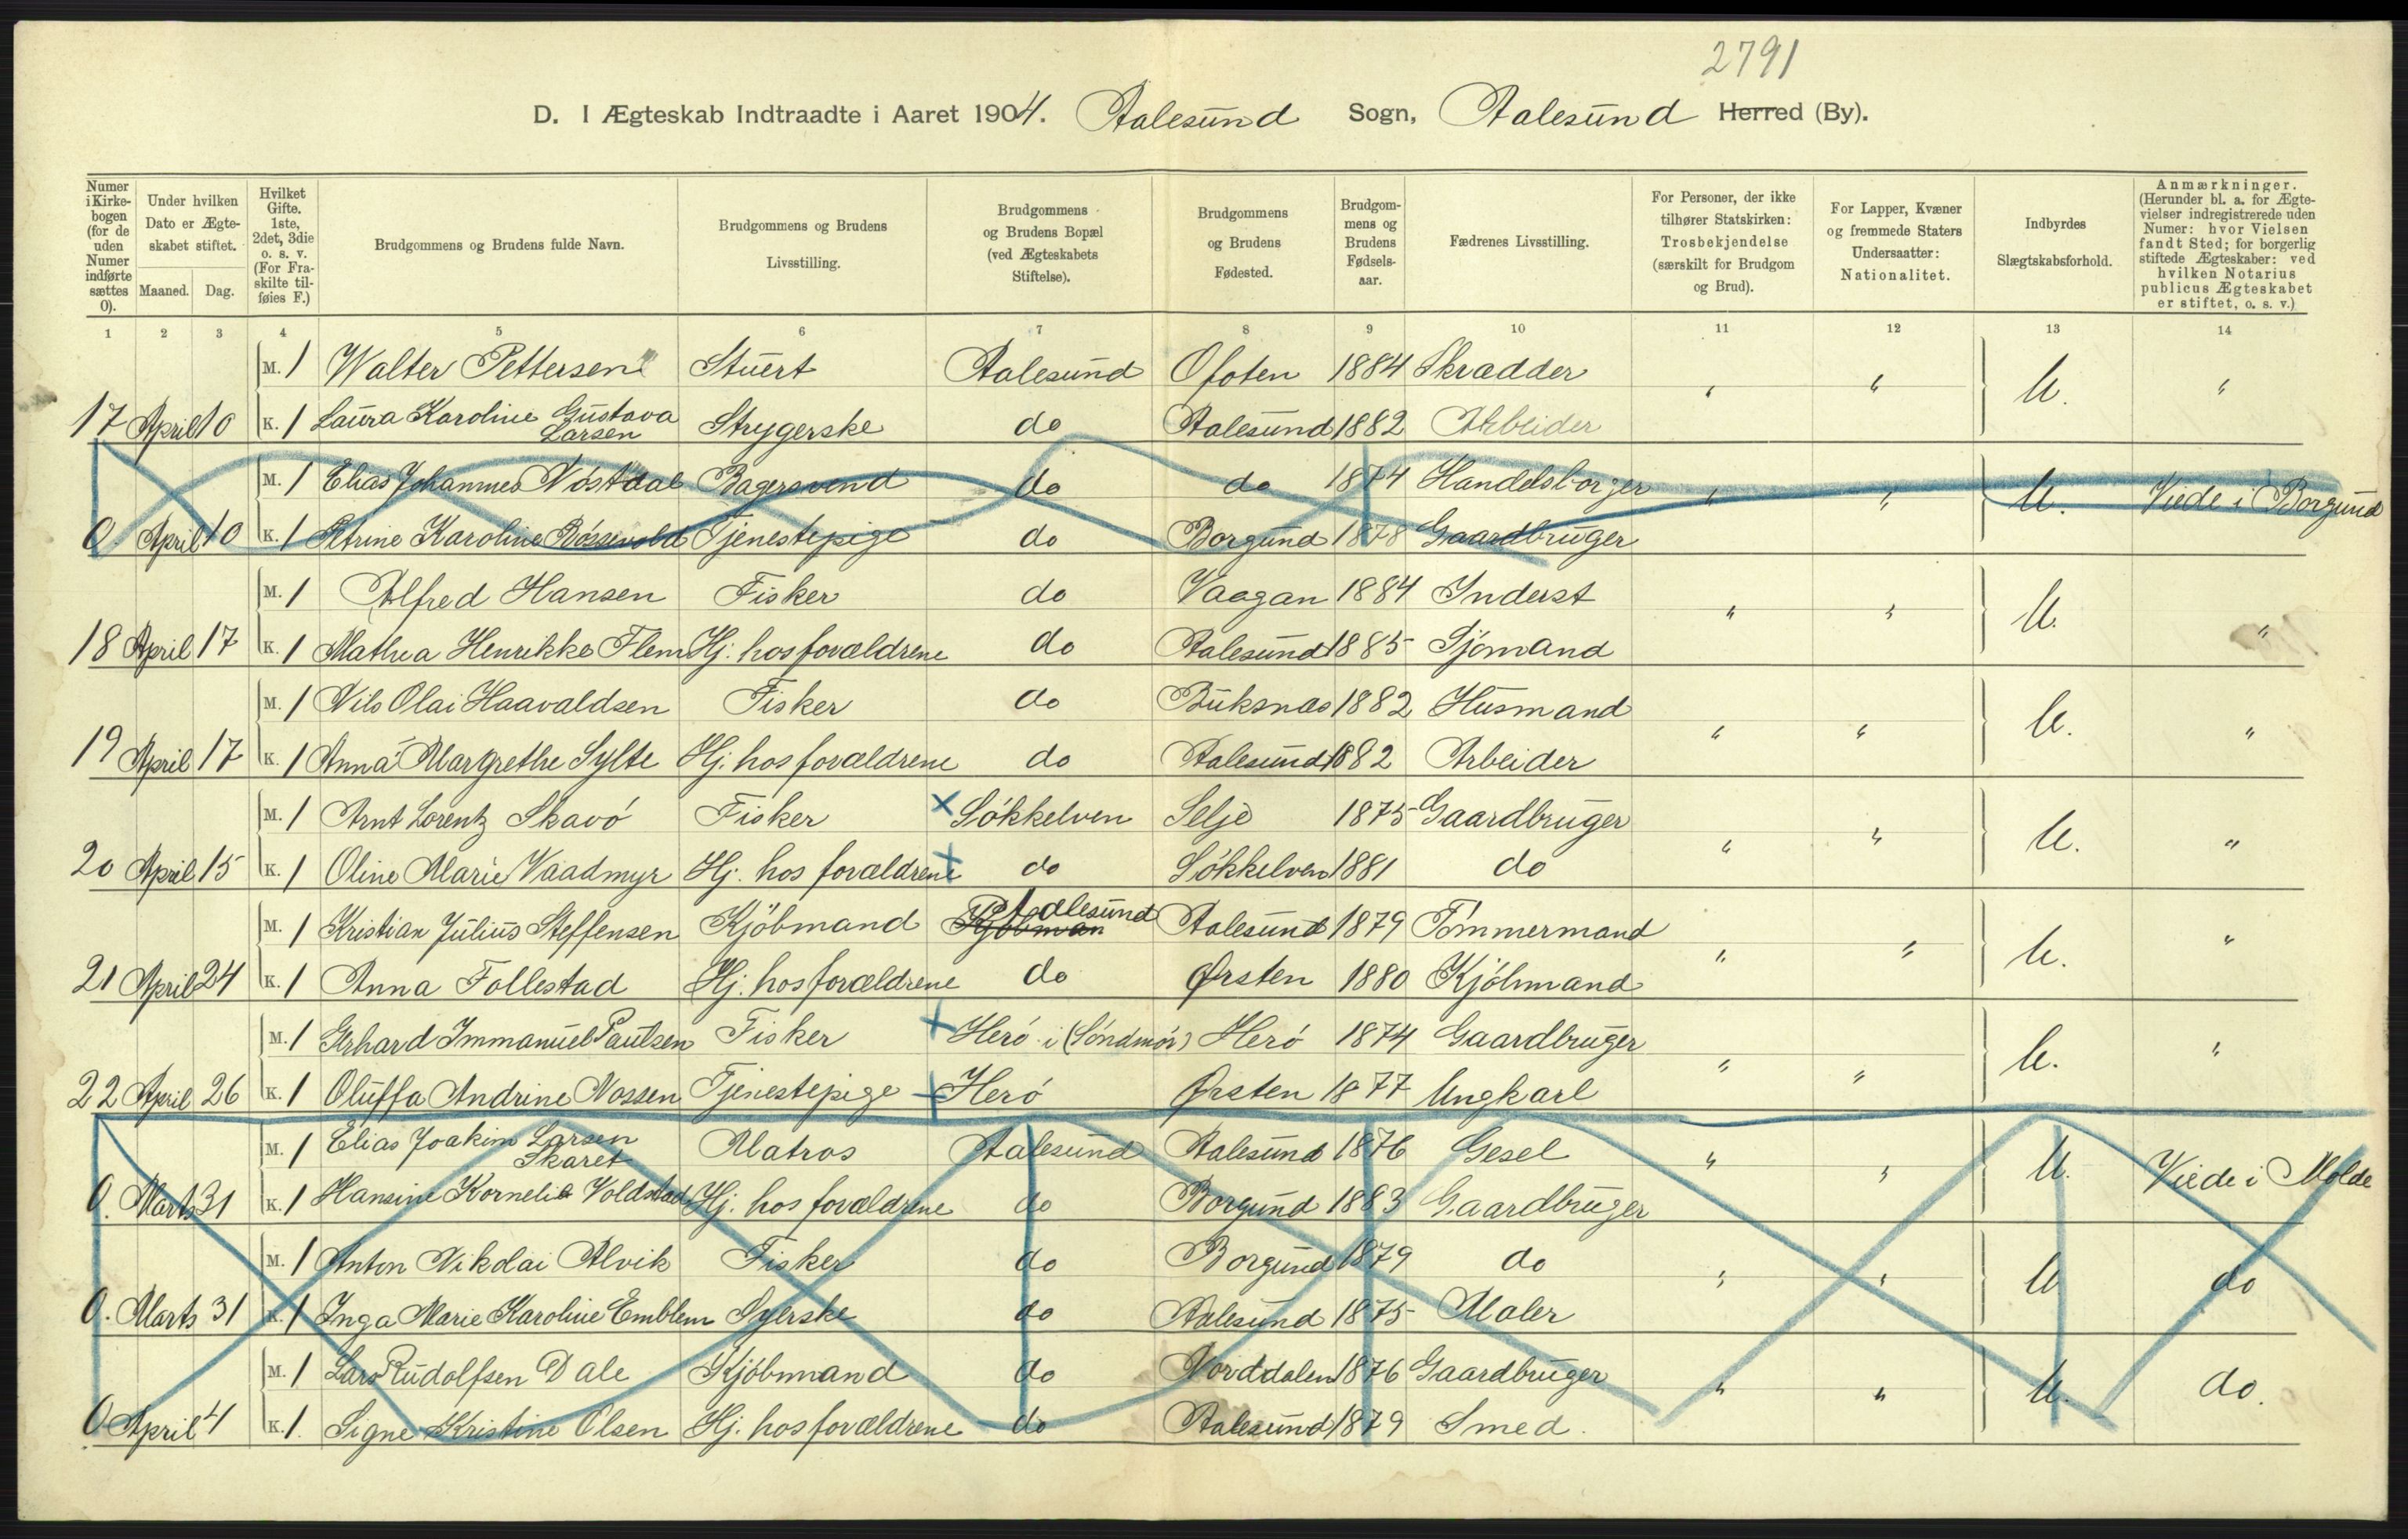 2791
D. I Ægteskab Indtraadte i Aaret 1904. Aalesund Sogn, Aalesund Herred (By).
Numer i Kirkebogen (for de uden Numer indførte sættes 0).
Under hvilken Dato er Ægteskabet stiftet. Maaned. Dag.
Hvilket Gifte. 1ste, 2det, 3die o. s. v. (For Fraskilte tilføies F.)
Brudgommens og Brudens fulde Navn.
Brudgommens og Brudens Livsstilling.
Brudgommens og Brudens Bopæl (ved Ægteskabets Stiftelse).
Brudgommens og Brudens Fødested.
Brudgommens og Brudens Fødselsaar.
Fædrenes Livsstilling.
For Personer, der ikke tilhører Statskirken: Trosbekjendelse (særskilt for Brudgom og Brud).
For Lapper, Kvæner og fremmede Staters Undersaatter: Nationalitet.
Indbyrdes Slægtskabsforhold.
Anmærkninger. (Herunder bl. a. for Ægtevielser indregistrerede uden Numer: hvor Vielsen fandt Sted; for borgerlig stiftede Ægteskaber: ved hvilken Notarius publicus Ægteskabet er stiftet, o. s. v.)
1 2 3 4 5 6 7 8 9 10 11 12 13 14
M. 1 Walter Pettersen Stuert Aalesund Ofoten 1884 Skrædder " " U. "
17 April 10 K. 1 Laura Karoline Gustava Larsen Strygerske do Aalesund 1882 Arbeider
M. 1 Elias Johannes Nøstdal Bagersvend do do 1874 Handelsborger " " U. Viede i Borgund
0 April 10 K. 1 Petrine Karoline Røssevold Tjenestepige do Borgund 1878 Gaardbruger
M. 1 Alfred Hansen Fisker do Vaagan 1884 Inderst " " U. "
18 April 17 K. 1 Mathea Henrikke Flem Hj. hos forældrene do Aalesund 1885 Sjømand
M. 1 Nils Olai Haavaldsen Fisker do Buksnæs 1882 Husmand " " U. "
19 April 17 K. 1 Anna Margrethe Sylte Hj. hos forældrene do Aalesund 1882 Arbeider
M. 1 Arnt Lorentz Skavø Fisker x Søkkelven Selje 1875 Gaardbruger " " U. "
20 April 15 K. 1 Oline Marie Vaadmyr Hj. hos forældrene x do Søkkelven 1881 do
M. 1 Kristian Julius Steffensen Kjøbmand Kjøbman Aalesund Aalesund 1879 Tømmermand " " U. "
21 April 24 K. 1 Anna Follestad Hj. hos forældrene do Ørsten 1880 Kjøbmand
M. 1 Gerhard Immanuel Paulsen Fisker x Herø i (Søndmør) Herø 1874 Gaardbruger " " U. "
22 April 26 K. 1 Oluffa Andrine Nossen Tjenestepige x Herø Ørsten 1877 Ungkarl
M. 1 Elias Joakim Larsen Skaret Matros Aalesund Aalesund 1876 Gesel " " U. Viede i Molde
0. Marts 31 K. 1 Hansine Kornelia Voldstad Hj. hos forældrene do Borgund 1883 Gaardbruger
M. 1 Anton Nikolai Alvik Fisker do Borgund 1879 do " " U do
0. Marts 31 K. 1 Inga Marie Karoline Emblem Syerske do Aalesund 1875 Maler
M. 1 Lars Rudolfsen Dale Kjøbmand do Norddalen 1876 Gaardbruger " " U. do.
0 April 4 K. 1. Signe Kristine Olsen Hj. hos forældrene do Aalesund 1879 Smed.